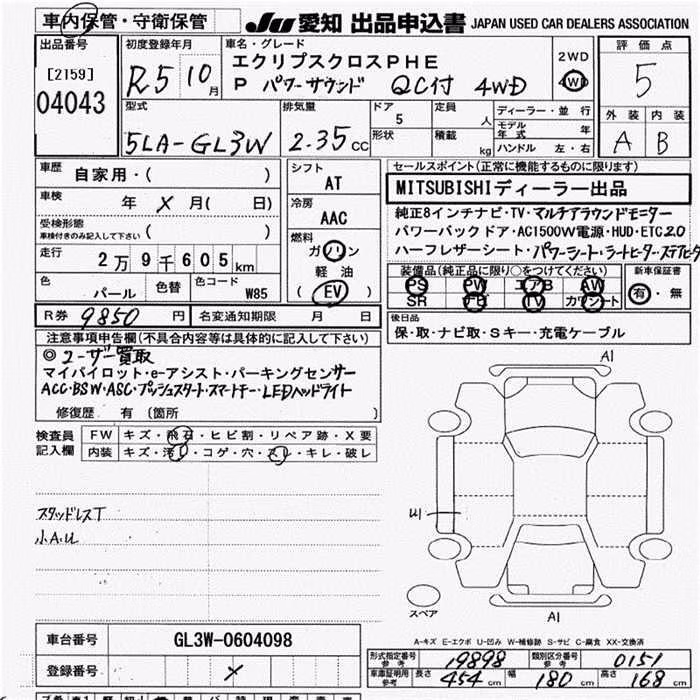 車内保管・守衛保管
JU 愛知 出品申込書 JAPAN USED CAR DEALERS ASSOCIATION
出品番号
[2159]
04043
初度登録年月
R5 10月
車名・グレード
エクリプスクロスPHE
P パワーサウンド QC付 4WD
2WD
4WD
評価点
5
型式
5LA-GL3W
排気量
2.35cc
ドア
5
形状
定員
人
積載
kg
ディーラー・並行
モデル年式 年
ハンドル 左・右
外装 内装
A B
車歴
自家用・( )
車検
年 × 月( 日)
受検形態
車検付きのみ記入して下さい ( )
走行
2万9千605km
色
パール
色替
色コード
W85
シフト
AT
冷房
AAC
燃料
ガソリン
軽油
(EV)
セールスポイント(正常に機能するものに限ります)
MITSUBISHIディーラー出品
純正8インチナビ・TV・マルチアラウンドモニター
パワーバックドア・AC1500W電源・HUD・ETC2.0
ハーフレザーシート・パワーシート・シートヒーター・ステアヒータ
装備品(純正品に限り○をつけてください)
PS PW エアB AW
SR ナビ TV カワシート
新車保証書
有・無
R券 9850円 名変通知期限 月 日
後日品
保・取・ナビ取・Sキー・充電ケーブル
注意事項申告欄(不具合内容等は具体的に記入して下さい)
◎ユーザー買取
マイパイロット・e-アシスト・パーキングセンサー
ACC・BSW・ASC・プッシュスタート・スマートキー・LEDヘッドライト
修復歴 有 (箇所 )
検査員
記入欄
FW キズ・飛石・ヒビ割・リペア跡・X要
内装 キズ・汚レ・コゲ・穴・スレ・キレ・破レ
スタッドレスT
小A.U
A1
U1
スペア
A1
A-キズ E-エクボ U-凹み W-補修跡 S-サビ C-腐食 XX-交換済
車台番号 GL3W-0604098
登録番号 ×
形式指定番号 参考 19898 類別区分番号 参考 0151
車庫証明用 参考 長さ 454cm 幅 180cm 高さ 168cm